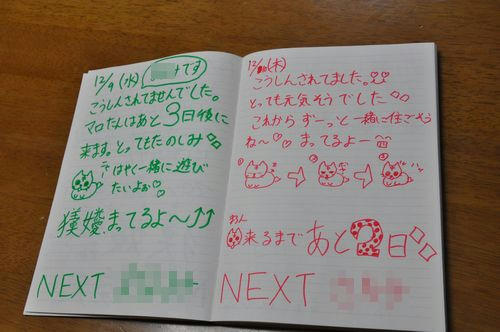 12/9 (水) です
こうしんされてませんでした。
マロたんはあと3日後に
来ます。とってもたのしみ
はやく一緒に遊び
たいよぉ
まってるよ〜↑↑
NEXT
12/ (木)
こうしんされてました。
とっても元気そうでした
これから ずーっと 一緒に住ごそう
ね〜♡ まってるよー
① ⇨ ② ⇨ ③
わん
来るまで あと2日
NEXT